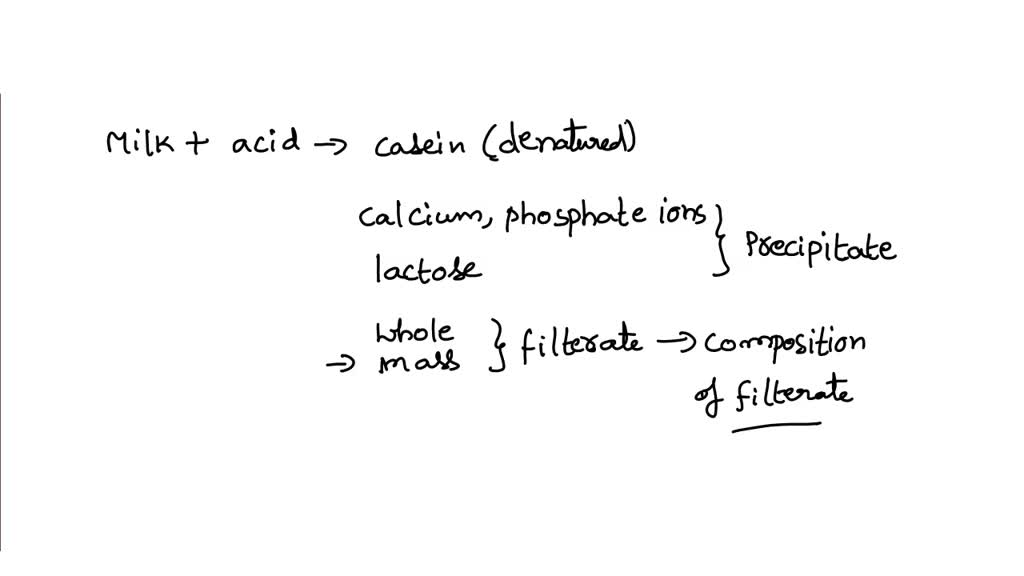 Milk + acid → casein (denatured)
calcium, phosphate ions } Precipitate
lactose
→ whole mass } filterate → composition
of filterate